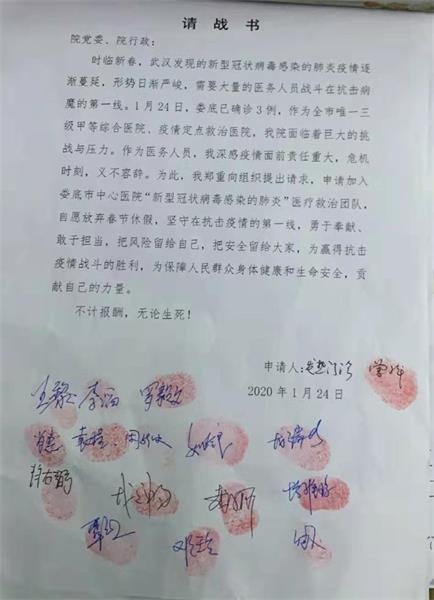 请战书
院党委、院行政：
时临新春，武汉发现的新型冠状病毒感染的肺炎疫情逐
渐蔓延，形势日渐严峻，需要大量的医务人员战斗在抗击病
魔的第一线。1月24日，娄底已确诊3例，作为全市唯一三
级甲等综合医院、疫情定点救治医院，我院面临着巨大的挑
战与压力。作为医务人员，我深感疫情面前责任重大，危机
时刻，义不容辞。为此，我郑重向组织提出请求，申请加入
娄底市中心医院“新型冠状病毒感染的肺炎”医疗救治团队，
自愿放弃春节休假，坚守在抗击疫情的第一线，勇于奉献、
敢于担当，把风险留给自己，把安全留给大家，为赢得抗击
疫情战斗的胜利，为保障人民群众身体健康和生命安全，贡
献自己的力量。
不计报酬，无论生死！
申请人：
2020年1月24日